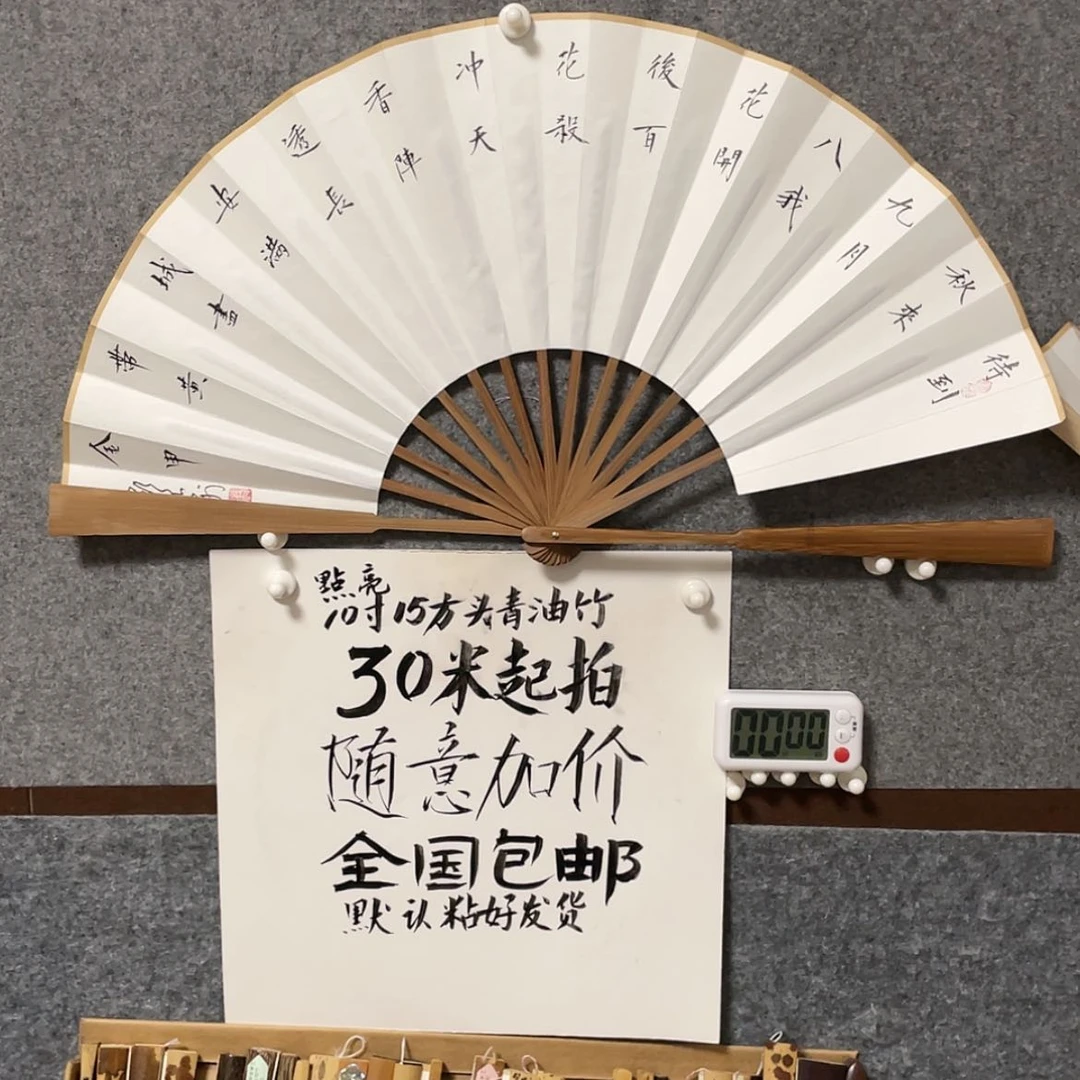 待到
秋來
九月
八我
花開
後百
花殺
冲天
香陣
透長
安滿
城盡
帶黃
金甲
點亮
10寸15方头青油竹
30米起拍
随意加价
全国包邮
默认粘好发货
00:00